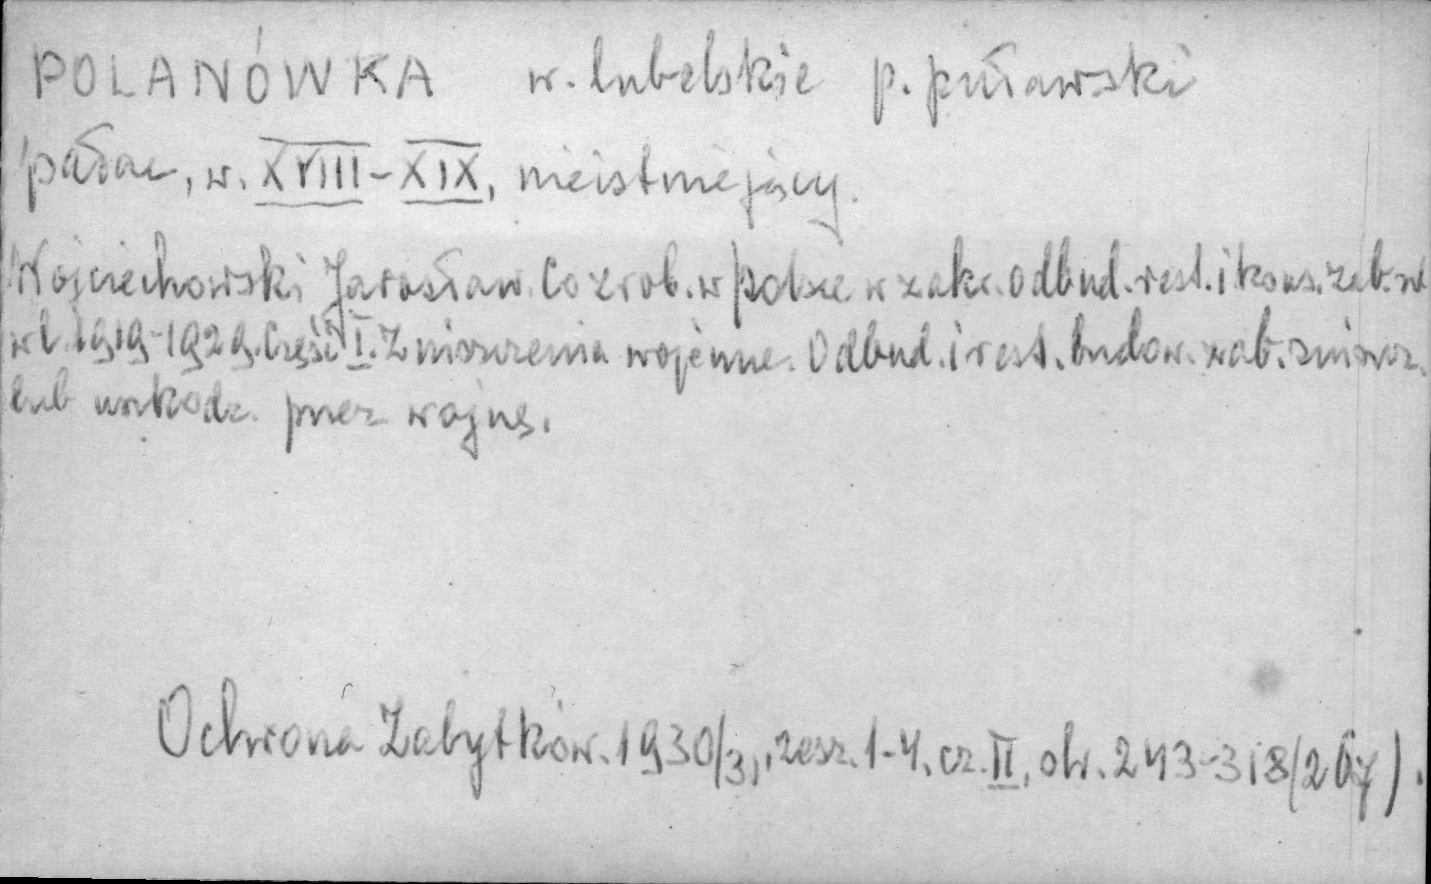 POLANÓWKA w. lubelskie p. puławski
pałac, w. XVIII-XIX, nieistniejący.
Wojciechowski Jarosław. Co zrob. w Polsce w zakr. odbud. rest. i kons. zab. szt.
w l. 1919-1929. Część I. Zniszczenia wojenne. Odbud. i rest. budow. zab. zniszcz.
lub uszkodz. przez wojnę.
Ochrona Zabytków. 1930/31, zesz. 1-4. cz. II, str. 243-318/267).